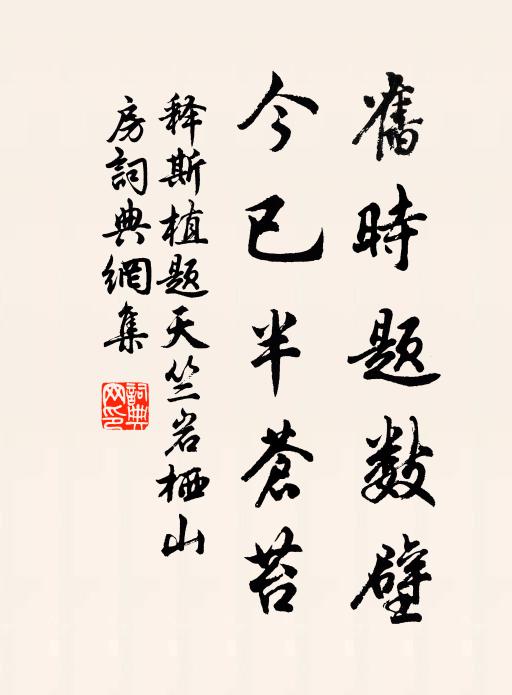 舊時題數壁
今已半蒼苔
释斯植题天竺岩栖山
房詞典網集
詞典網印